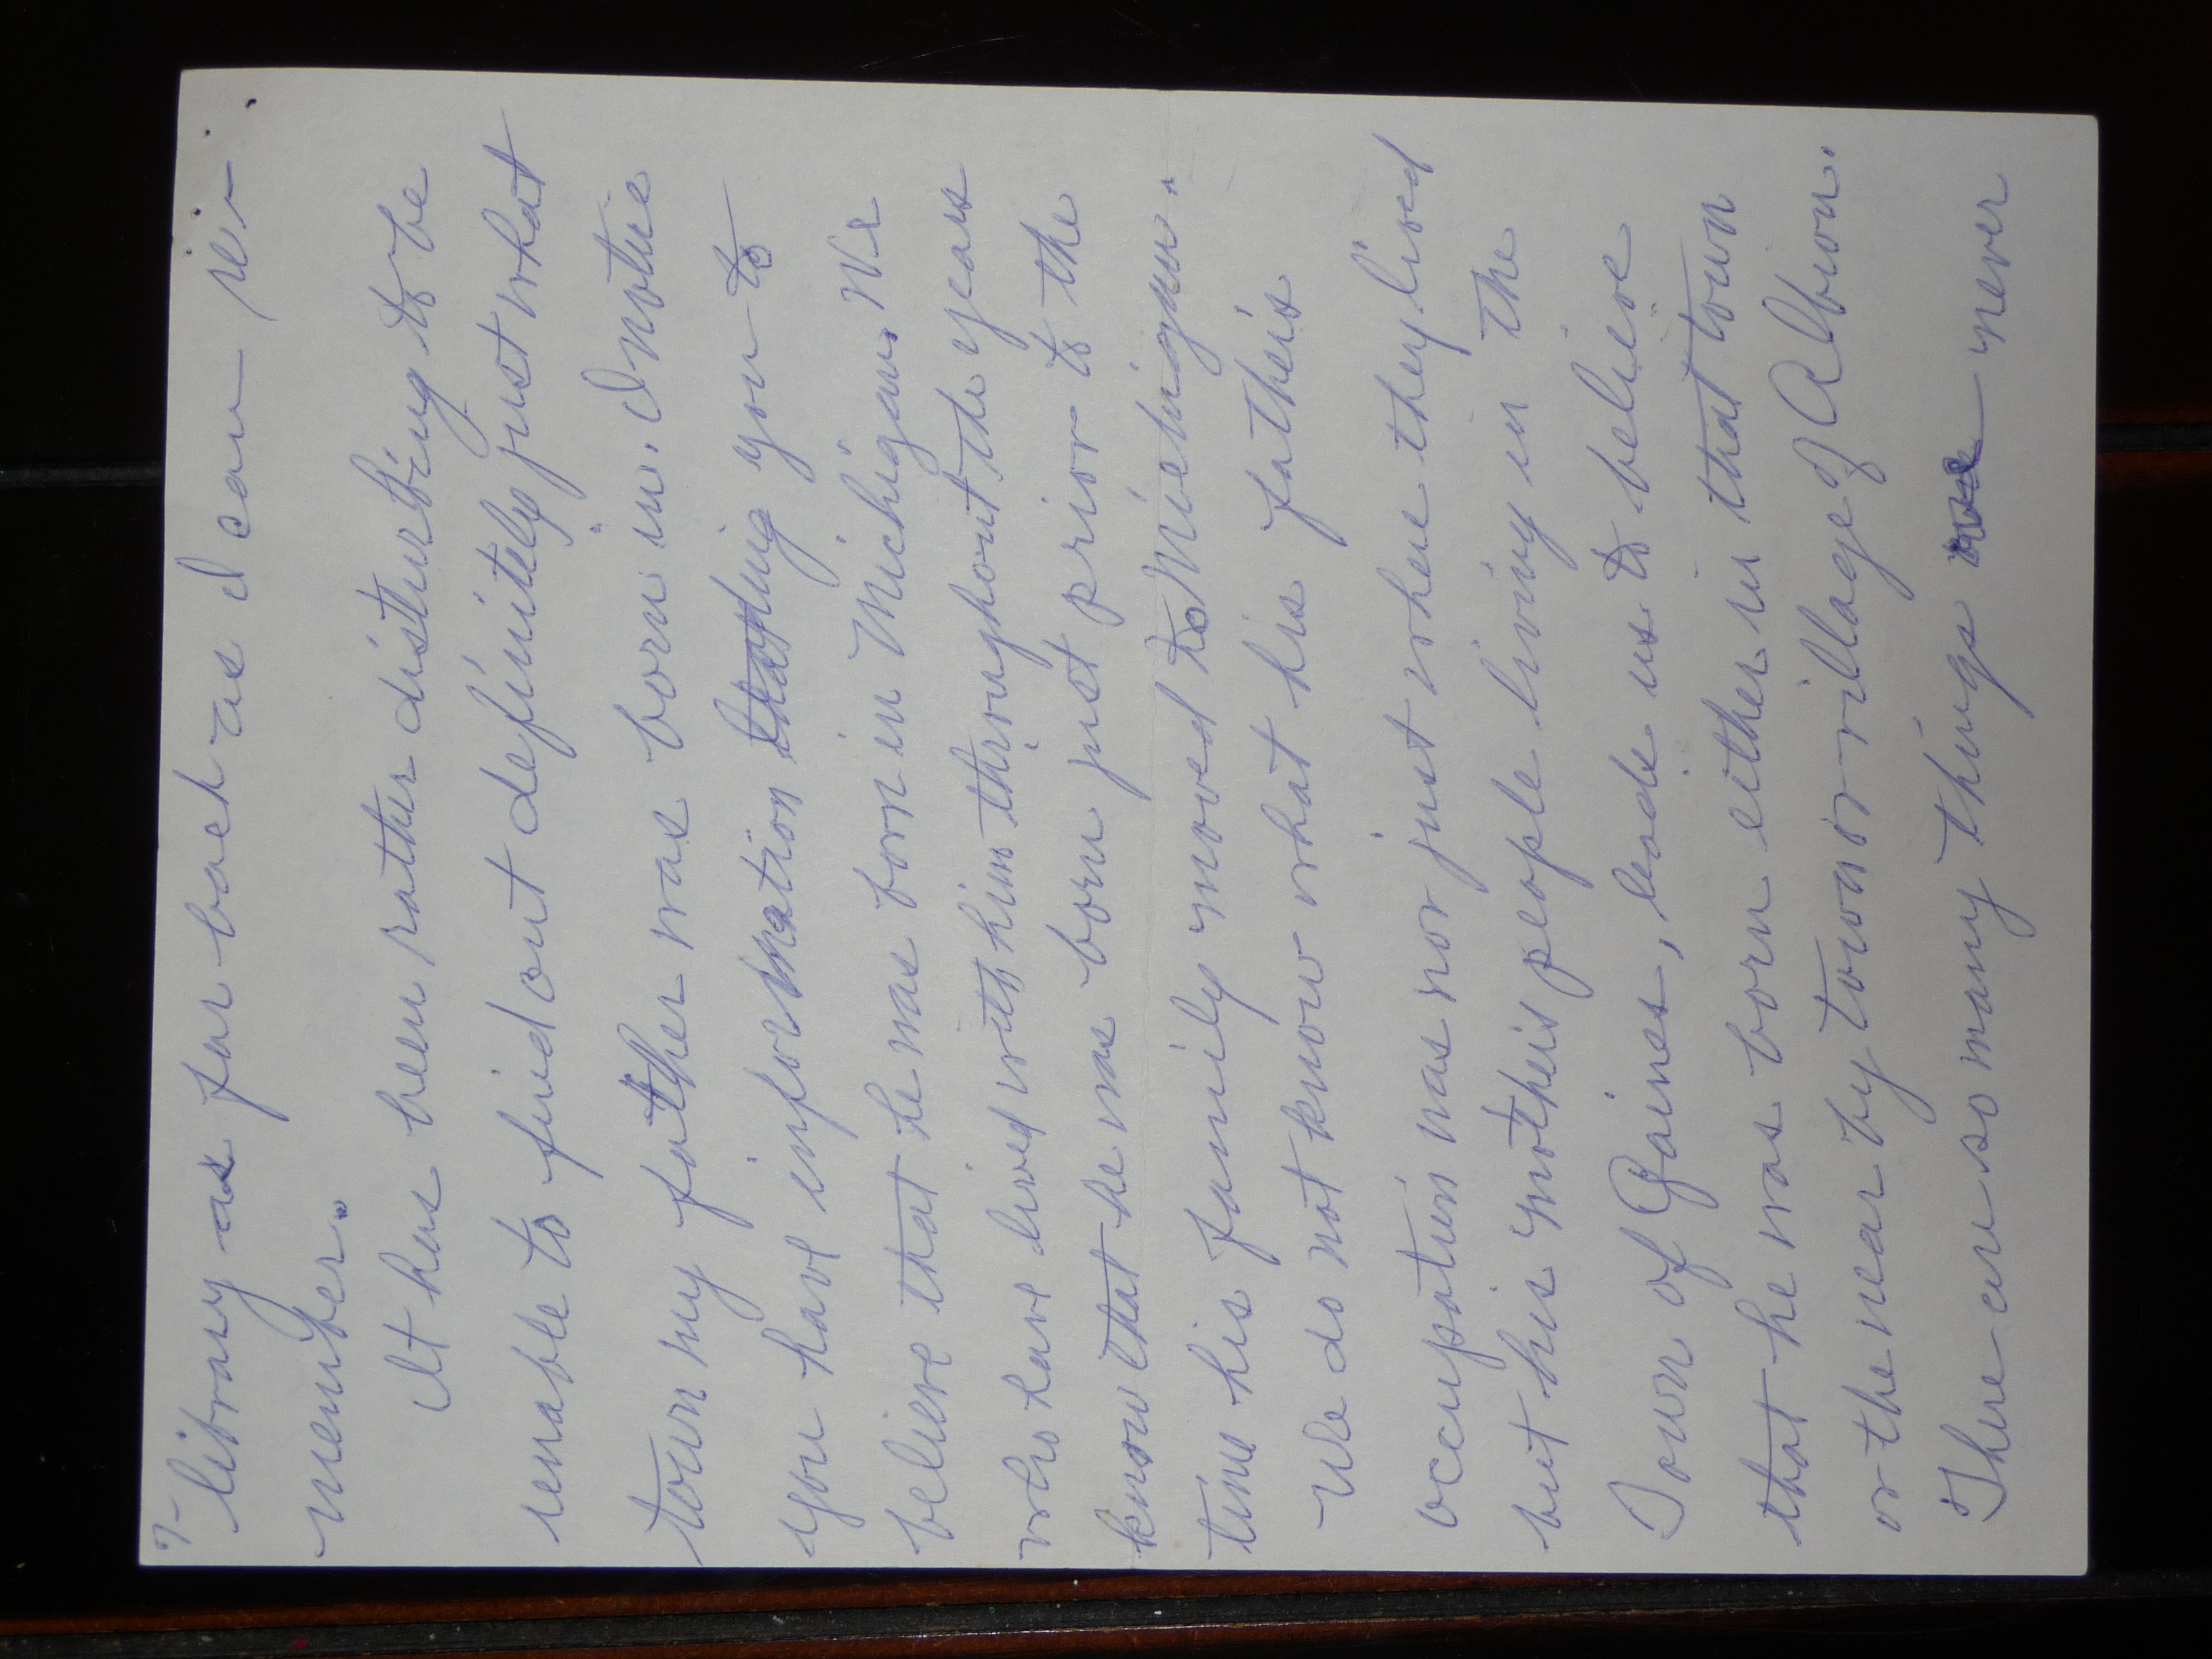 7-
library as far back as I can re-
member.
It has been rather disturbing to be
unable to find out definitely just what
town my father was born in. I notice
you have information leading you to
believe that he was born in Michigan. We
who have lived with him throughout the years
know that he was born just prior to the
time his family moved to Michigan.
We do not know what his father's
occupation was nor just where they lived
but his mother's people living in the
Town of Gaines, leads us to believe
that he was born either in that town
or the near by town or village of Albion.
There are so many things we never